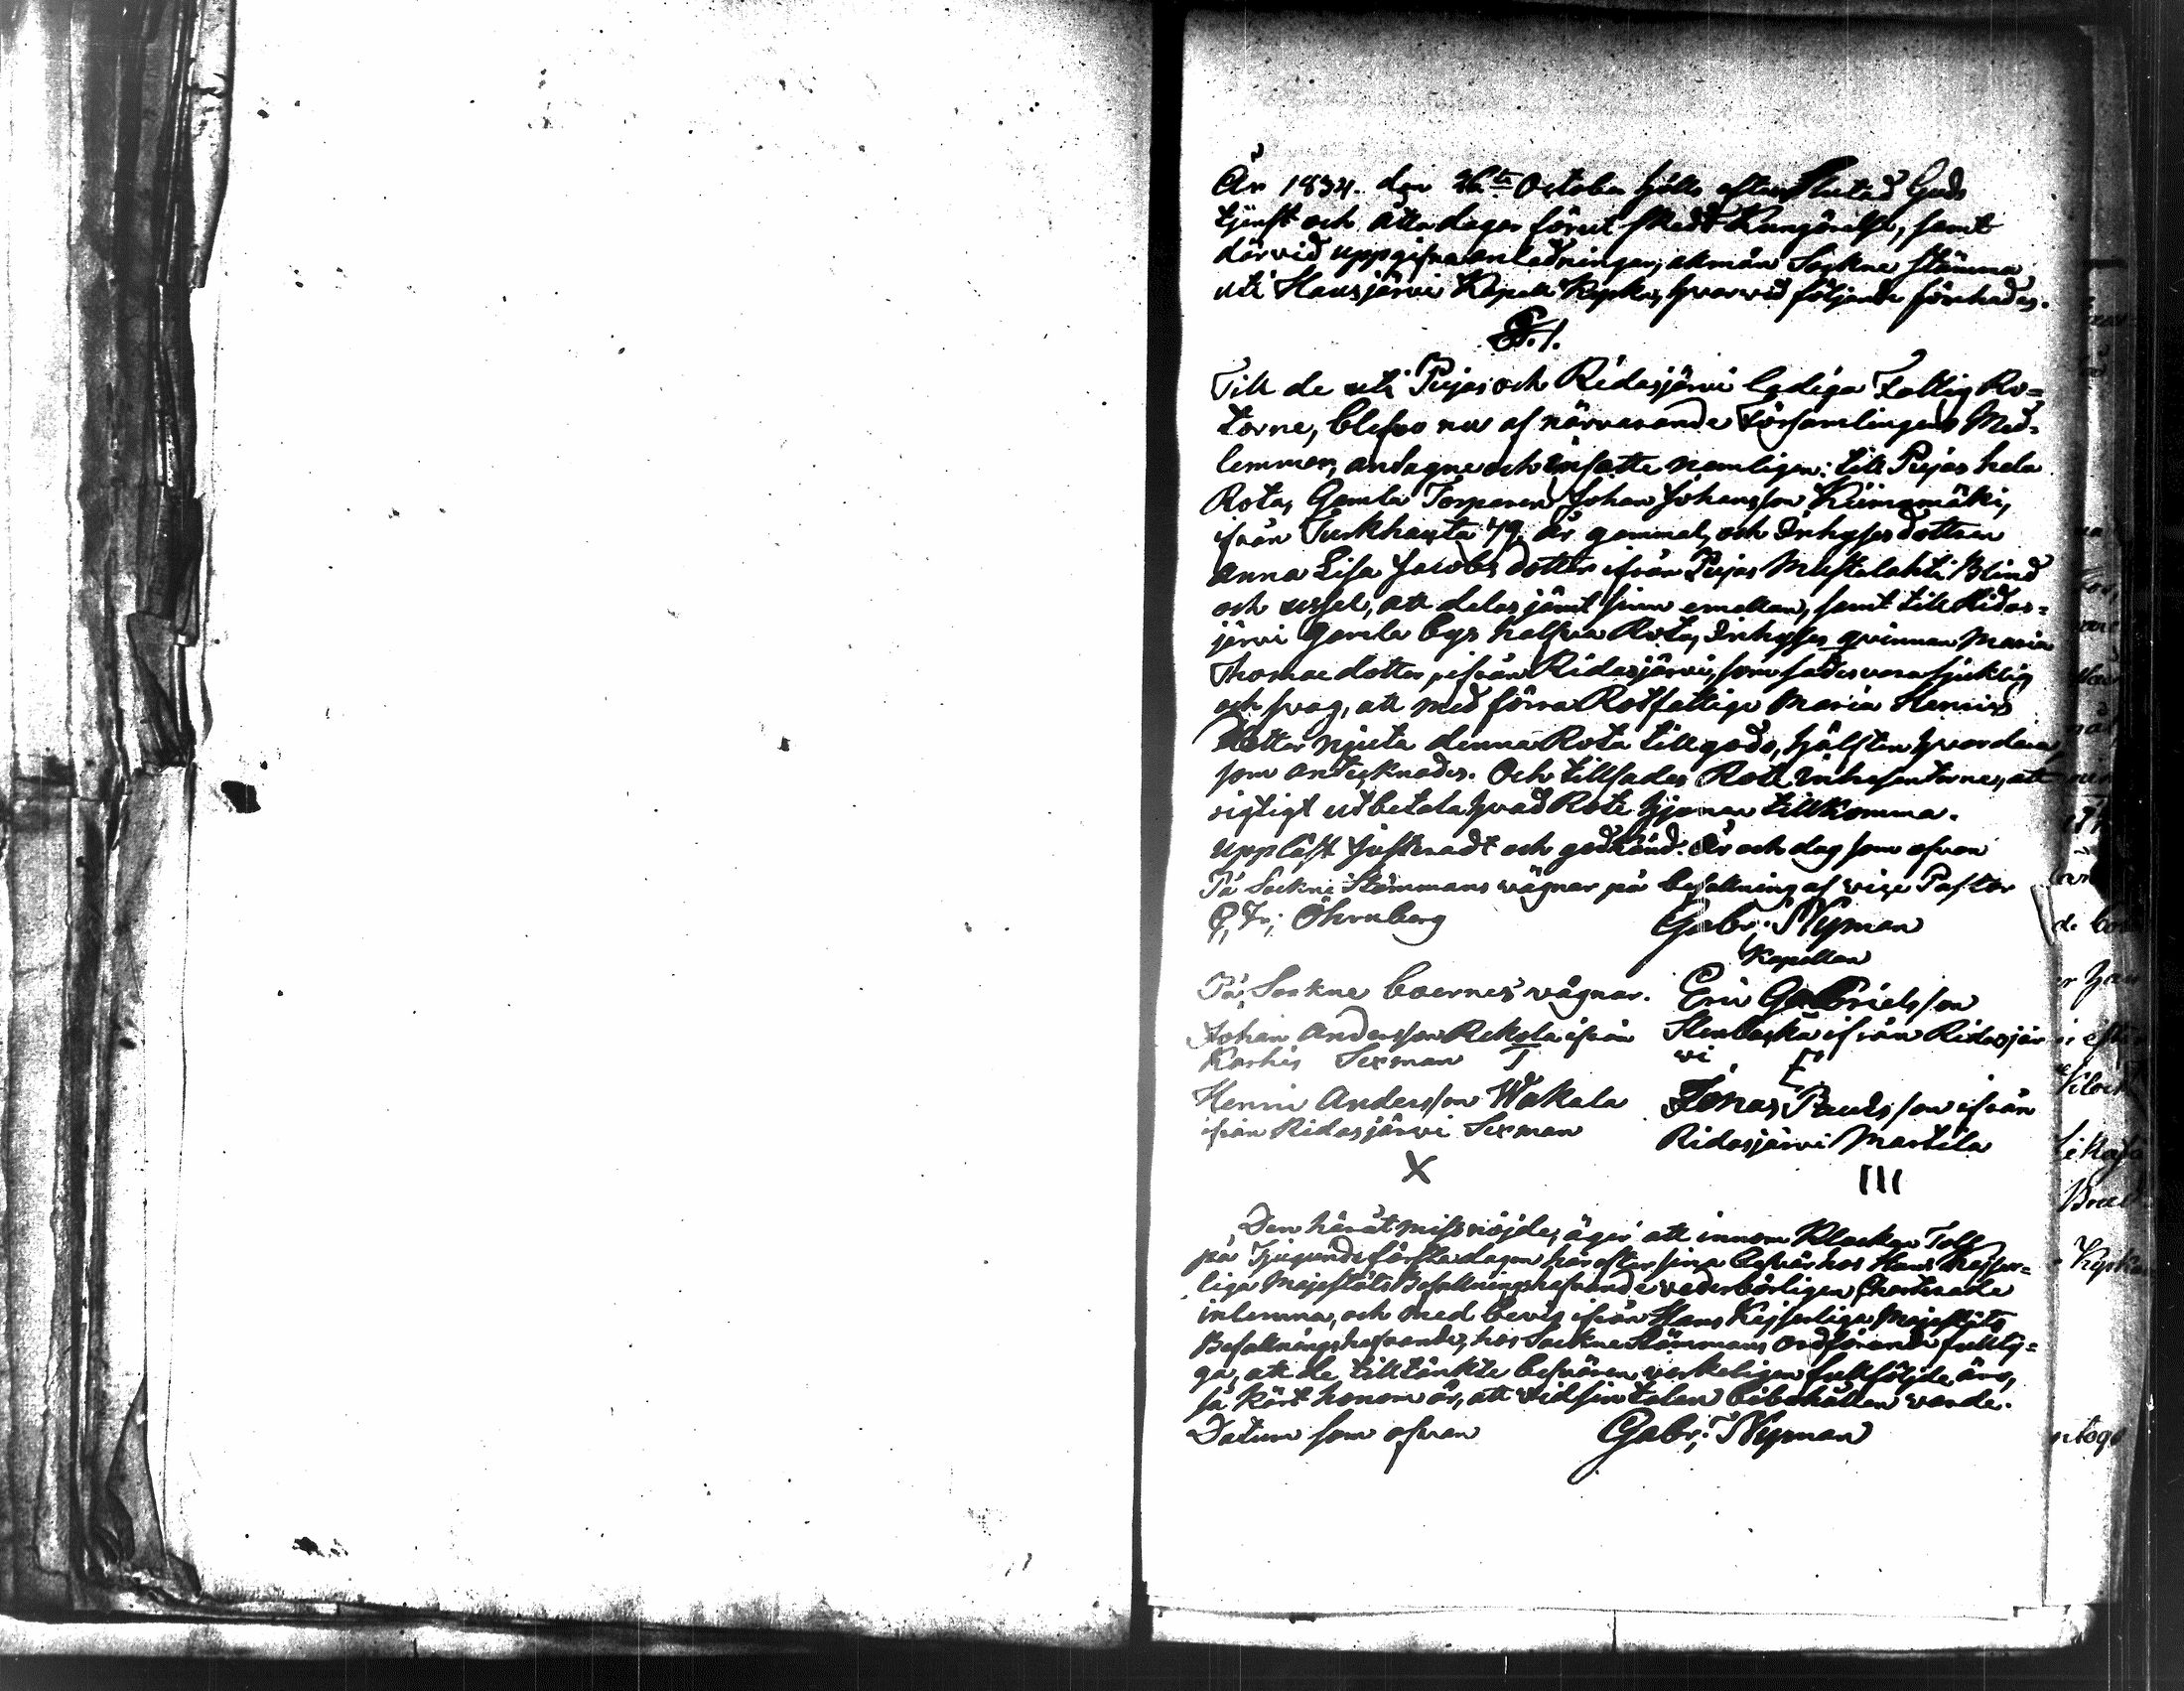 År 1834. den 26te October hölls efter slutad Guds
tjenst och åtta dagar förut skedt Kungörelse, samt
därvid uppgifna anledningar, allmän Sockne stämma
uti Hausjärvi Kapell Kyrka, hvarvid följande förehades.
§.1.
Till de uti Pujas och Ridasjärvi lediga Fattig Ro=
torne, blefvo nu af närvarande Församlingens Med=
lemmar, antagne och insatte nemligen: till Pujas hela
Rota, Gamla Torparen Johan Johansson Kiimamäki,
ifrån Turkhauta 79. år gammal, och Inhyses dottren
Anna Lisa Jacobs dotter ifrån Pujas Mustalahti Blind
och ussel, att delas jämt sinn emellan, samt till Ridas=
järvi Gamla bys halfva Rota, Inhyses qvinnan Maria
Thomae dotter, ifrån Ridasjärvi, som sades vara sjuklig
och svag, att med förra Rotfattige Maria Henrics
dotter njuta denna Rota tillgodo, hälften hvardera,
som antecknades. Och tillsades Rote Inhefvarne, att
rigtigt utbetala hvad Rote hjonen tillkomma.
Uppläst justeradt och godkänd. År och dag som ofvan
På Sockne Stämmans vägnar på befallning af vice Pastor
G, Fr; Öhrnberg Gabr; Nyman
Kapellan
På Sockne boernes vägnar. Eric Gabrielsson
Johan Andersson Rekola ifrån Stenbacka ifrån Ridasjär
Karhis Sexman T vi E
Henric Andersson Wakala Jonas Paulsson ifrån
ifrån Ridasjärvi Sexman Ridasjärvi Martila
X III
Den häråt missnöjde, äger att innom Klockan Tolf
på Tjugundeförsta dagen härefter sina besvär hos Hans Kejser=
liga Majestäts Befallningshafvande vederbörligen Charterade
inlemna, och med bevis ifrån Hans Kejserliga Majestäts
Befallningshafvande, hos Sockne Stämmans ordförande fullty=
ga, att de tilltänkte besvären verkeligen fullföljde äro,
så kärt honom är, att vid sin talan bibehållen varde.
Datum som ofvan Gabr; Nyman